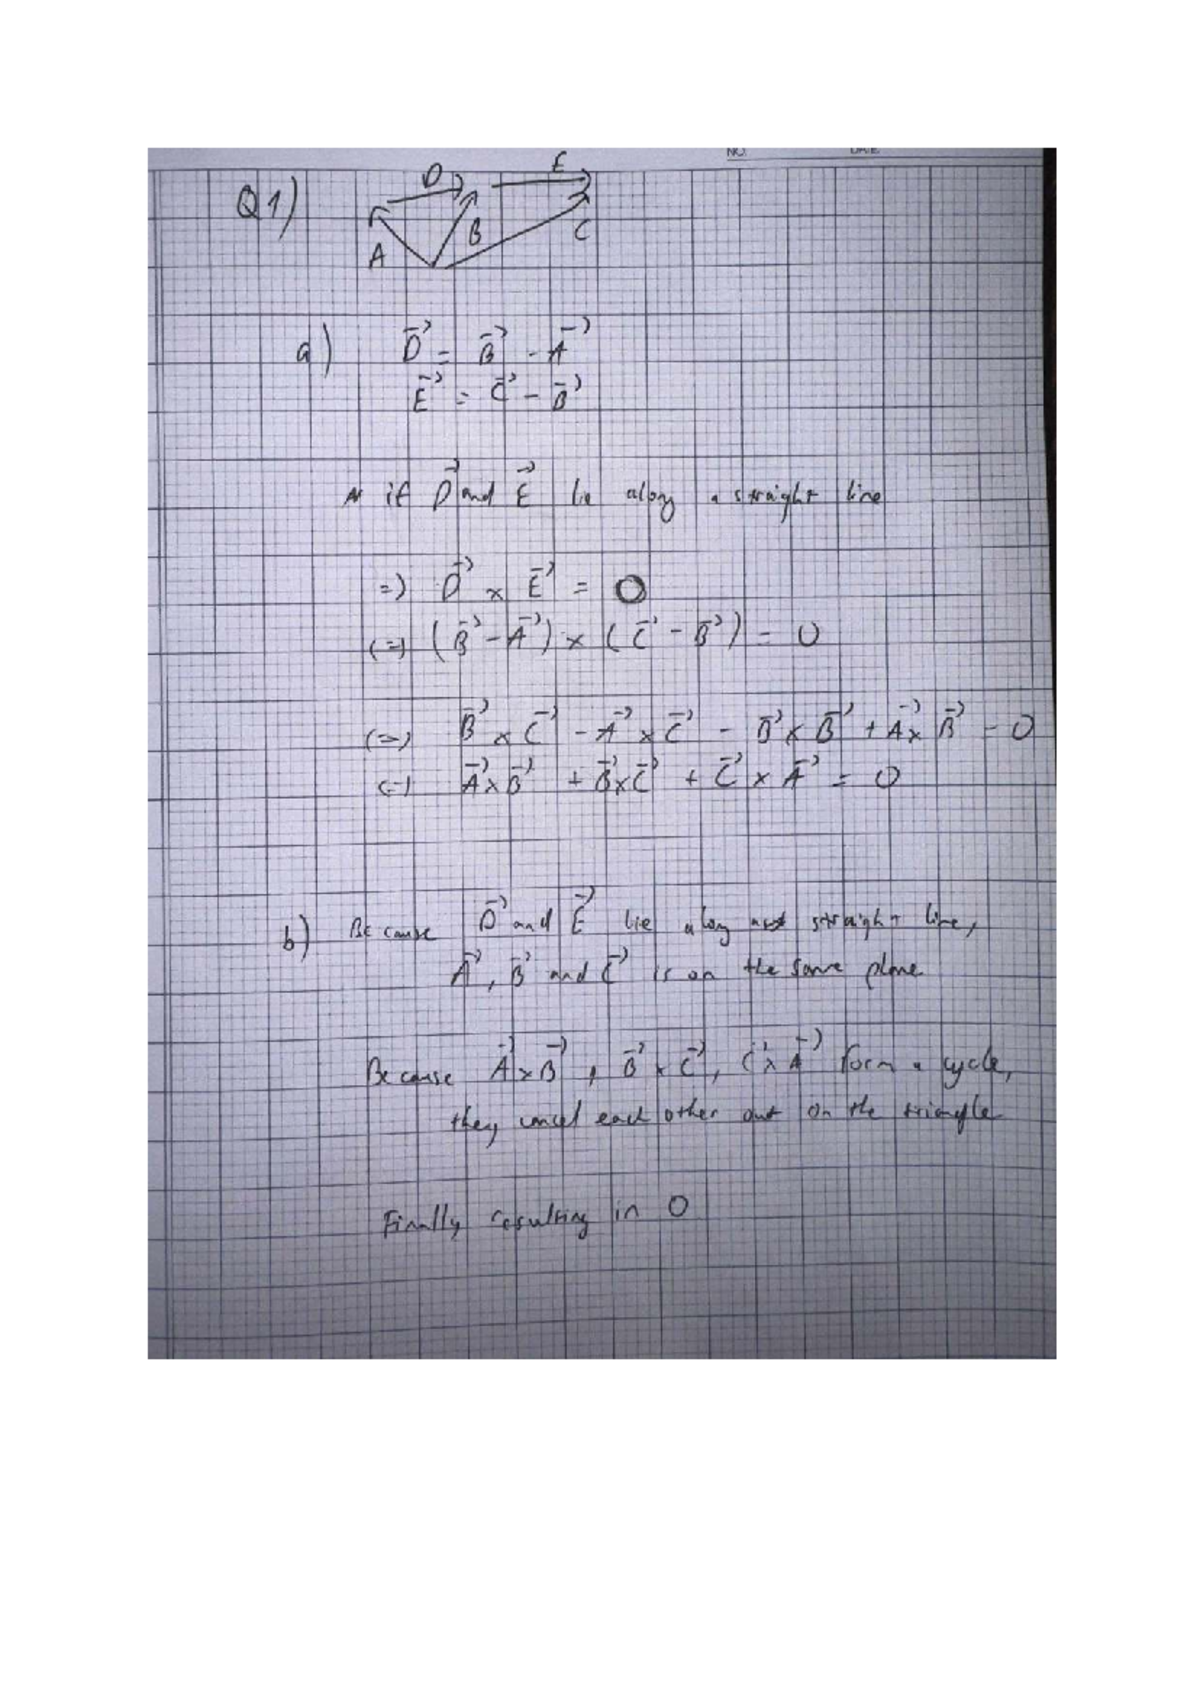 NO. DATE
Q1)
D E
A B C
a) D⃗ = B⃗ - A⃗
E⃗ = C⃗ - B⃗
if D⃗ and E⃗ lie along a straight line
=> D⃗ × E⃗ = 0
(=) (B⃗ - A⃗) × (C⃗ - B⃗) = 0
(=) B⃗ × C⃗ - A⃗ × C⃗ - B⃗ × B⃗ + A⃗ × B⃗ = 0
(=) A⃗ × B⃗ + B⃗ × C⃗ + C⃗ × A⃗ = 0
b) Because D⃗ and E⃗ lie along straight line,
A⃗, B⃗ and C⃗ is on the same plane
Because A⃗ × B⃗, B⃗ × C⃗, C⃗ × A⃗ form a cycle,
they cancel each other out on the triangle
Finally resulting in 0